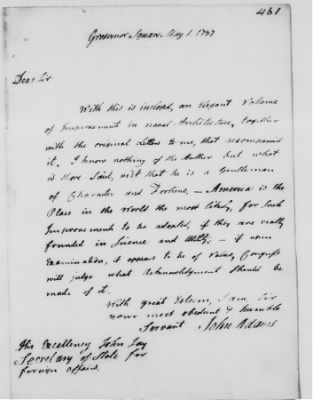 461
Grosvenor Square May 1. 1787
Dear Sir
With this is inclosed, an elegant Volume
of Improvements in naval Architecture, together
with the original Letters to me, that accompanied
it. I know nothing of the Author but what
is there said, vizt that he is a Gentleman
of Character and Fortune. — America is the
Place in the World the most likely, for such
Improvements to be adopted, if they are really
founded in Science and Utility. — if upon
Examination, it appears to be of Value, Congress
will judge what Acknowledgment should be
made of it.
With great Esteem, I am Sir
your most obedient & humble
Servant John Adams
His Excellency John Jay
Secretary of State for
foreign affairs.